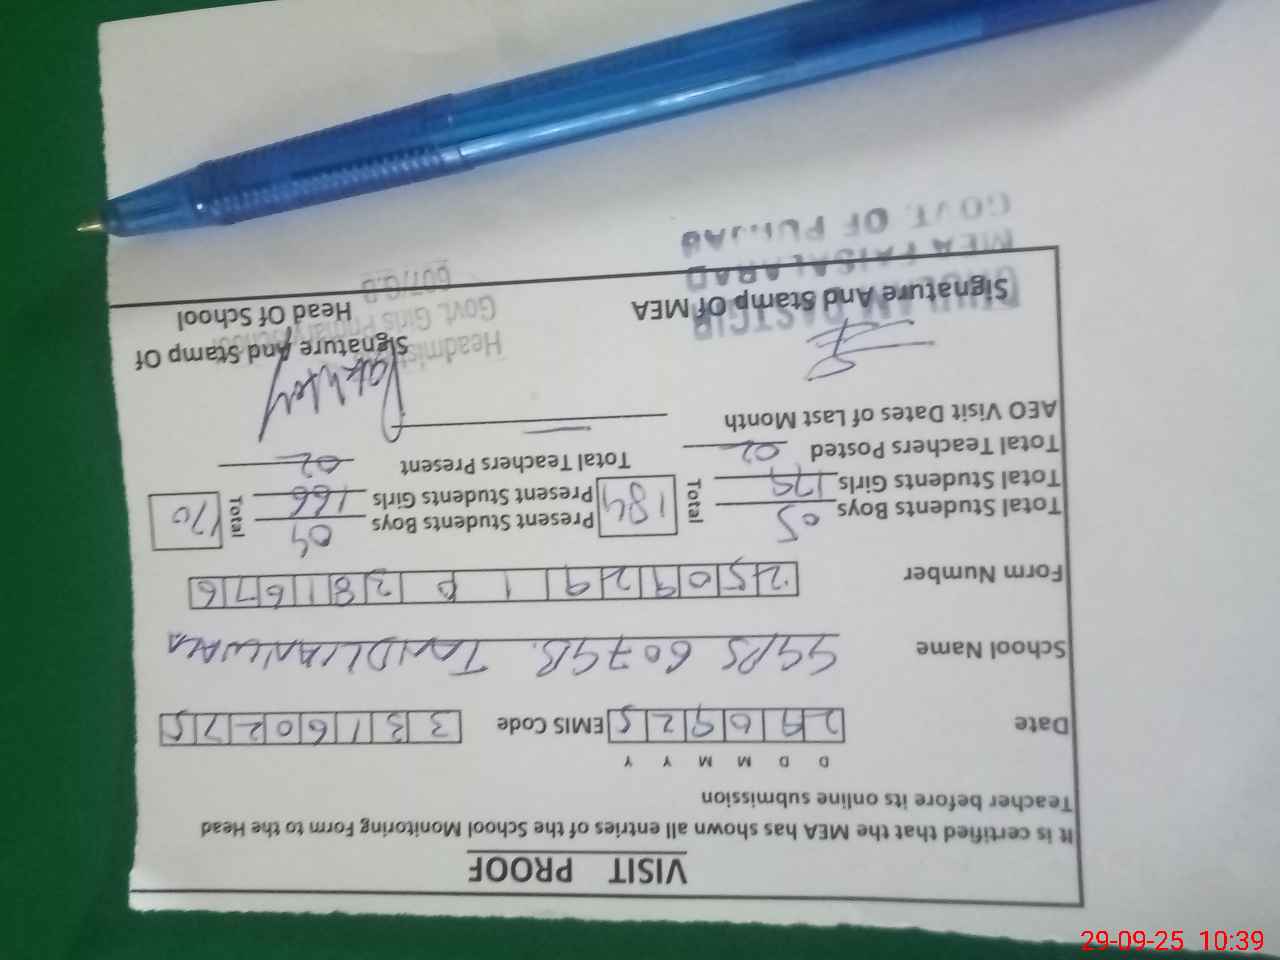 VISIT PROOF
It is certified that the MEA has shown all entries of the School Monitoring Form to the Head
Teacher before its online submission
D D M M Y Y
Date 290925 EMIS Code 33160275
School Name GGPS 607GB. TANDLIANWALA
Form Number 2509291P381676
Total Students Boys 05 Total 184 Present Students Boys 04 Total 170
Total Students Girls 179 Present Students Girls 166
Total Teachers Posted 02 Total Teachers Present 02
AEO Visit Dates of Last Month
Signature And Stamp Of MEA
Signature And Stamp Of
Head Of School
GHULAM DASTGIR
MEA FAISALABAD
GOVT. OF PUNJAB
Govt. Girls Primary School
607/G.B
29-09-25 10:39